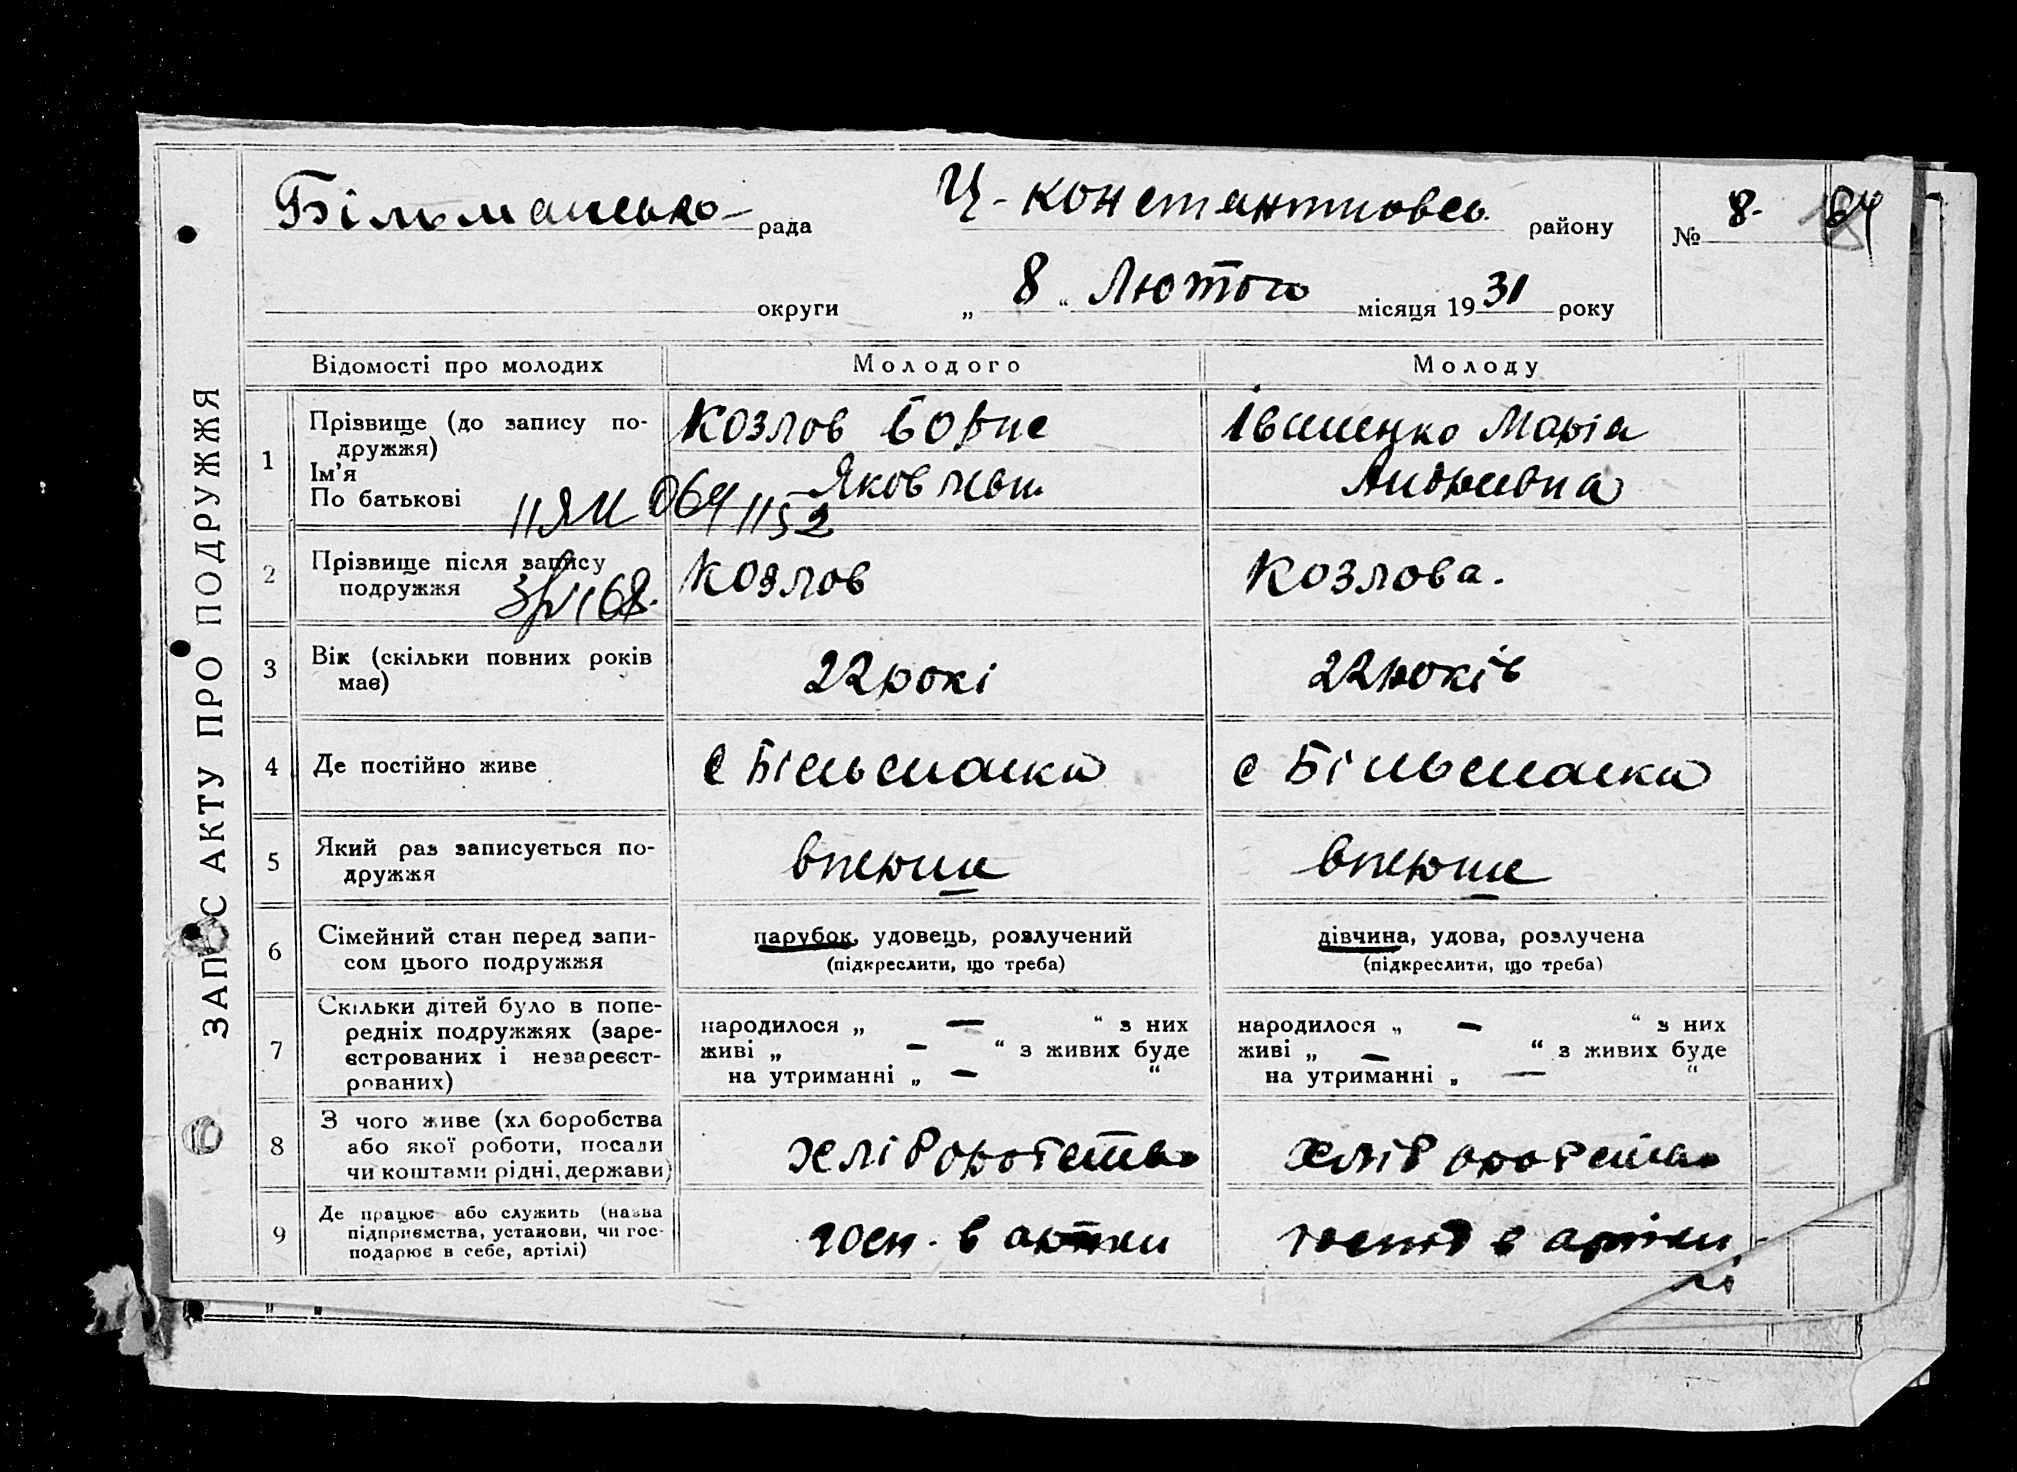 ЗАПИС АКТУ ПРО ПОДРУЖЖЯ
Більмансько рада Ц-Константиовсь району № 8.
64
округи „ 8 “ Лютого місяця 1931 року
Відомості про молодих Молодого Молоду
1 Прізвище (до запису по-
дружжя)
Ім'я
По батькові
Козлов Борис
Яковлевич
Іващенко Марія
Андрієвна
ІІЯИ 064115 2
2 Прізвище після запису
подружжя
Козлов
Козлова.
68.
3 Вік (скільки повних років
має)
22 рокі
22 років
4 Де постійно живе
с Більманка
с Більманка
5 Який раз записується по-
дружжя
вперше
вперше
6 Сімейний стан перед запи-
сом цього подружжя
парубок, удовець, розлучений
(підкреслити, що треба)
дівчина, удова, розлучена
(підкреслити, що треба)
7 Скільки дітей було в попе-
редніх подружжях (заре-
єстрованих і незареєст-
рованих)
народилося „ — “ з них
живі „ — “ з живих буде
на утриманні „ — “
народилося „ — “ з них
живі „ — “ з живих буде
на утриманні „ — “
8 З чого живе (хл боробства
або якої роботи, посади
чи коштами рідні, держави)
хліборобства
хліборобства
9 Де працює або служить (назва
підприємства, установи, чи гос-
подарює в себе, артілі)
госп. в артели
господ в артіли